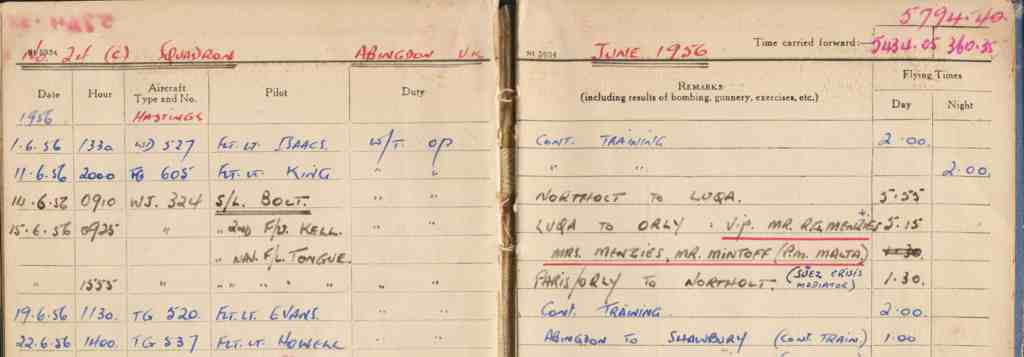 5794.40
No 24 (C) SQUADRON ABINGDON U.K. JUNE 1956 Time carried forward:— 5434.05 360.35
Date Hour Aircraft Type and No. Pilot Duty REMARKS (including results of bombing, gunnery, exercises, etc.) Flying Times Day Night
1956 HASTINGS
1.6.56 1330 WD 527 FLT. LT. ISAACS W/T OP CONT. TRAINING 2.00
11.6.56 2000 TG 605 FLT. LT. KING " " " " 2.00
14.6.56 0910 WJ. 324 S/L. BOLT. " " NORTHOLT TO LUQA. 5.55
15.6.56 0925 " " and F/O. KELL. " " LUQA TO ORLY . V.I.P. MR. R.G. MENZIES + 5.15
" NAV. F/L. TONGUE. MRS. MENZIES, MR. MINTOFF (P.M. MALTA) 1.30
" 1555 " " " " " " " PARIS/ORLY TO NORTHOLT. (SUEZ CRISIS MEDIATOR) 1.30
19.6.56 1130 TG 520 FLT. LT. EVANS. " " CONT. TRAINING. 2.00
22.6.56 1400 TG 537 FLT. LT. HOWELL " " ABINGDON TO SHAWBURY (CONT. TRAIN.) 1.00